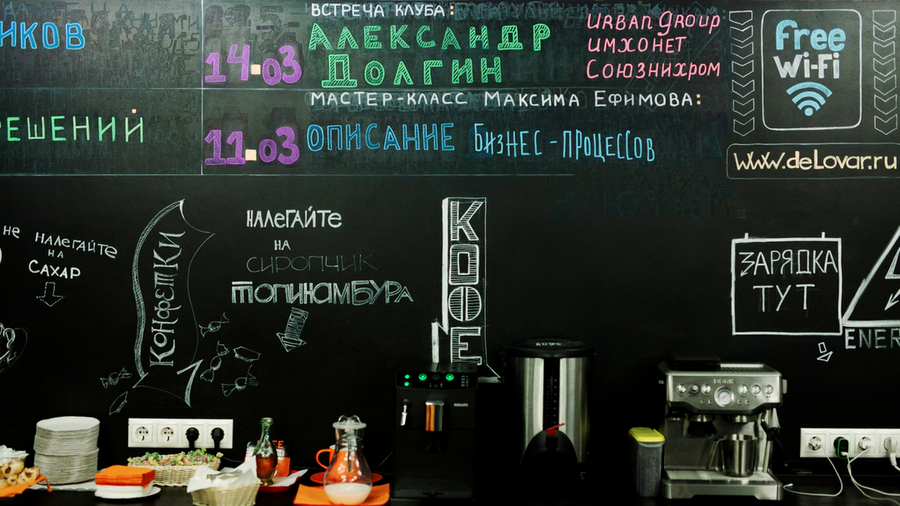 ИКОВ
РЕШЕНИЙ
ВСТРЕЧА КЛУБА:
14.03 АЛЕКСАНДР
ДОЛГИН
URBAN GROUP
ИМХОНЕТ
СОЮЗНИХРОМ
МАСТЕР-КЛАСС МАКСИМА ЕФИМОВА:
11.03 ОПИСАНИЕ БИЗНЕС-ПРОЦЕССОВ
Free
Wi-Fi
www.deLovar.ru
НЕ НАЛЕГАЙТЕ
НА
САХАР
КОНФЕТКИ
НАЛЕГАЙТЕ
НА
СИРОПЧИК
ТОПИНАМБУРА
КОФЕ
ЗАРЯДКА
ТУТ
ENER